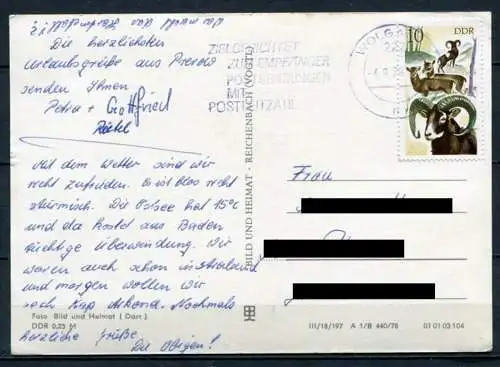 Die herzlichsten
Urlaubsgrüße aus Prerow
senden Ihnen
Petra + Gottfried
Mit dem Wetter sind wir
recht zufrieden. Es ist blos recht
stürmisch. Die Ostsee hat 15°C
und da kostet das Baden
richtige Überwindung. Wir
waren auch schon in Stralsund
und morgen wollen wir
nach Kap Arkona. Nochmals
herzliche Grüße
Die Obigen!
Foto Bild und Heimat ( Darr )
DDR 0,25 M
BILD UND HEIMAT · REICHENBACH (VOGTL)
ZIELGERICHTET
ZUM EMPFÄNGER
POSTSENDUNGEN
MIT
POSTLEITZAHL
WOLGAST
10 DDR
Frau
III/18/197 A 1/B 440/78 01 01 03 104